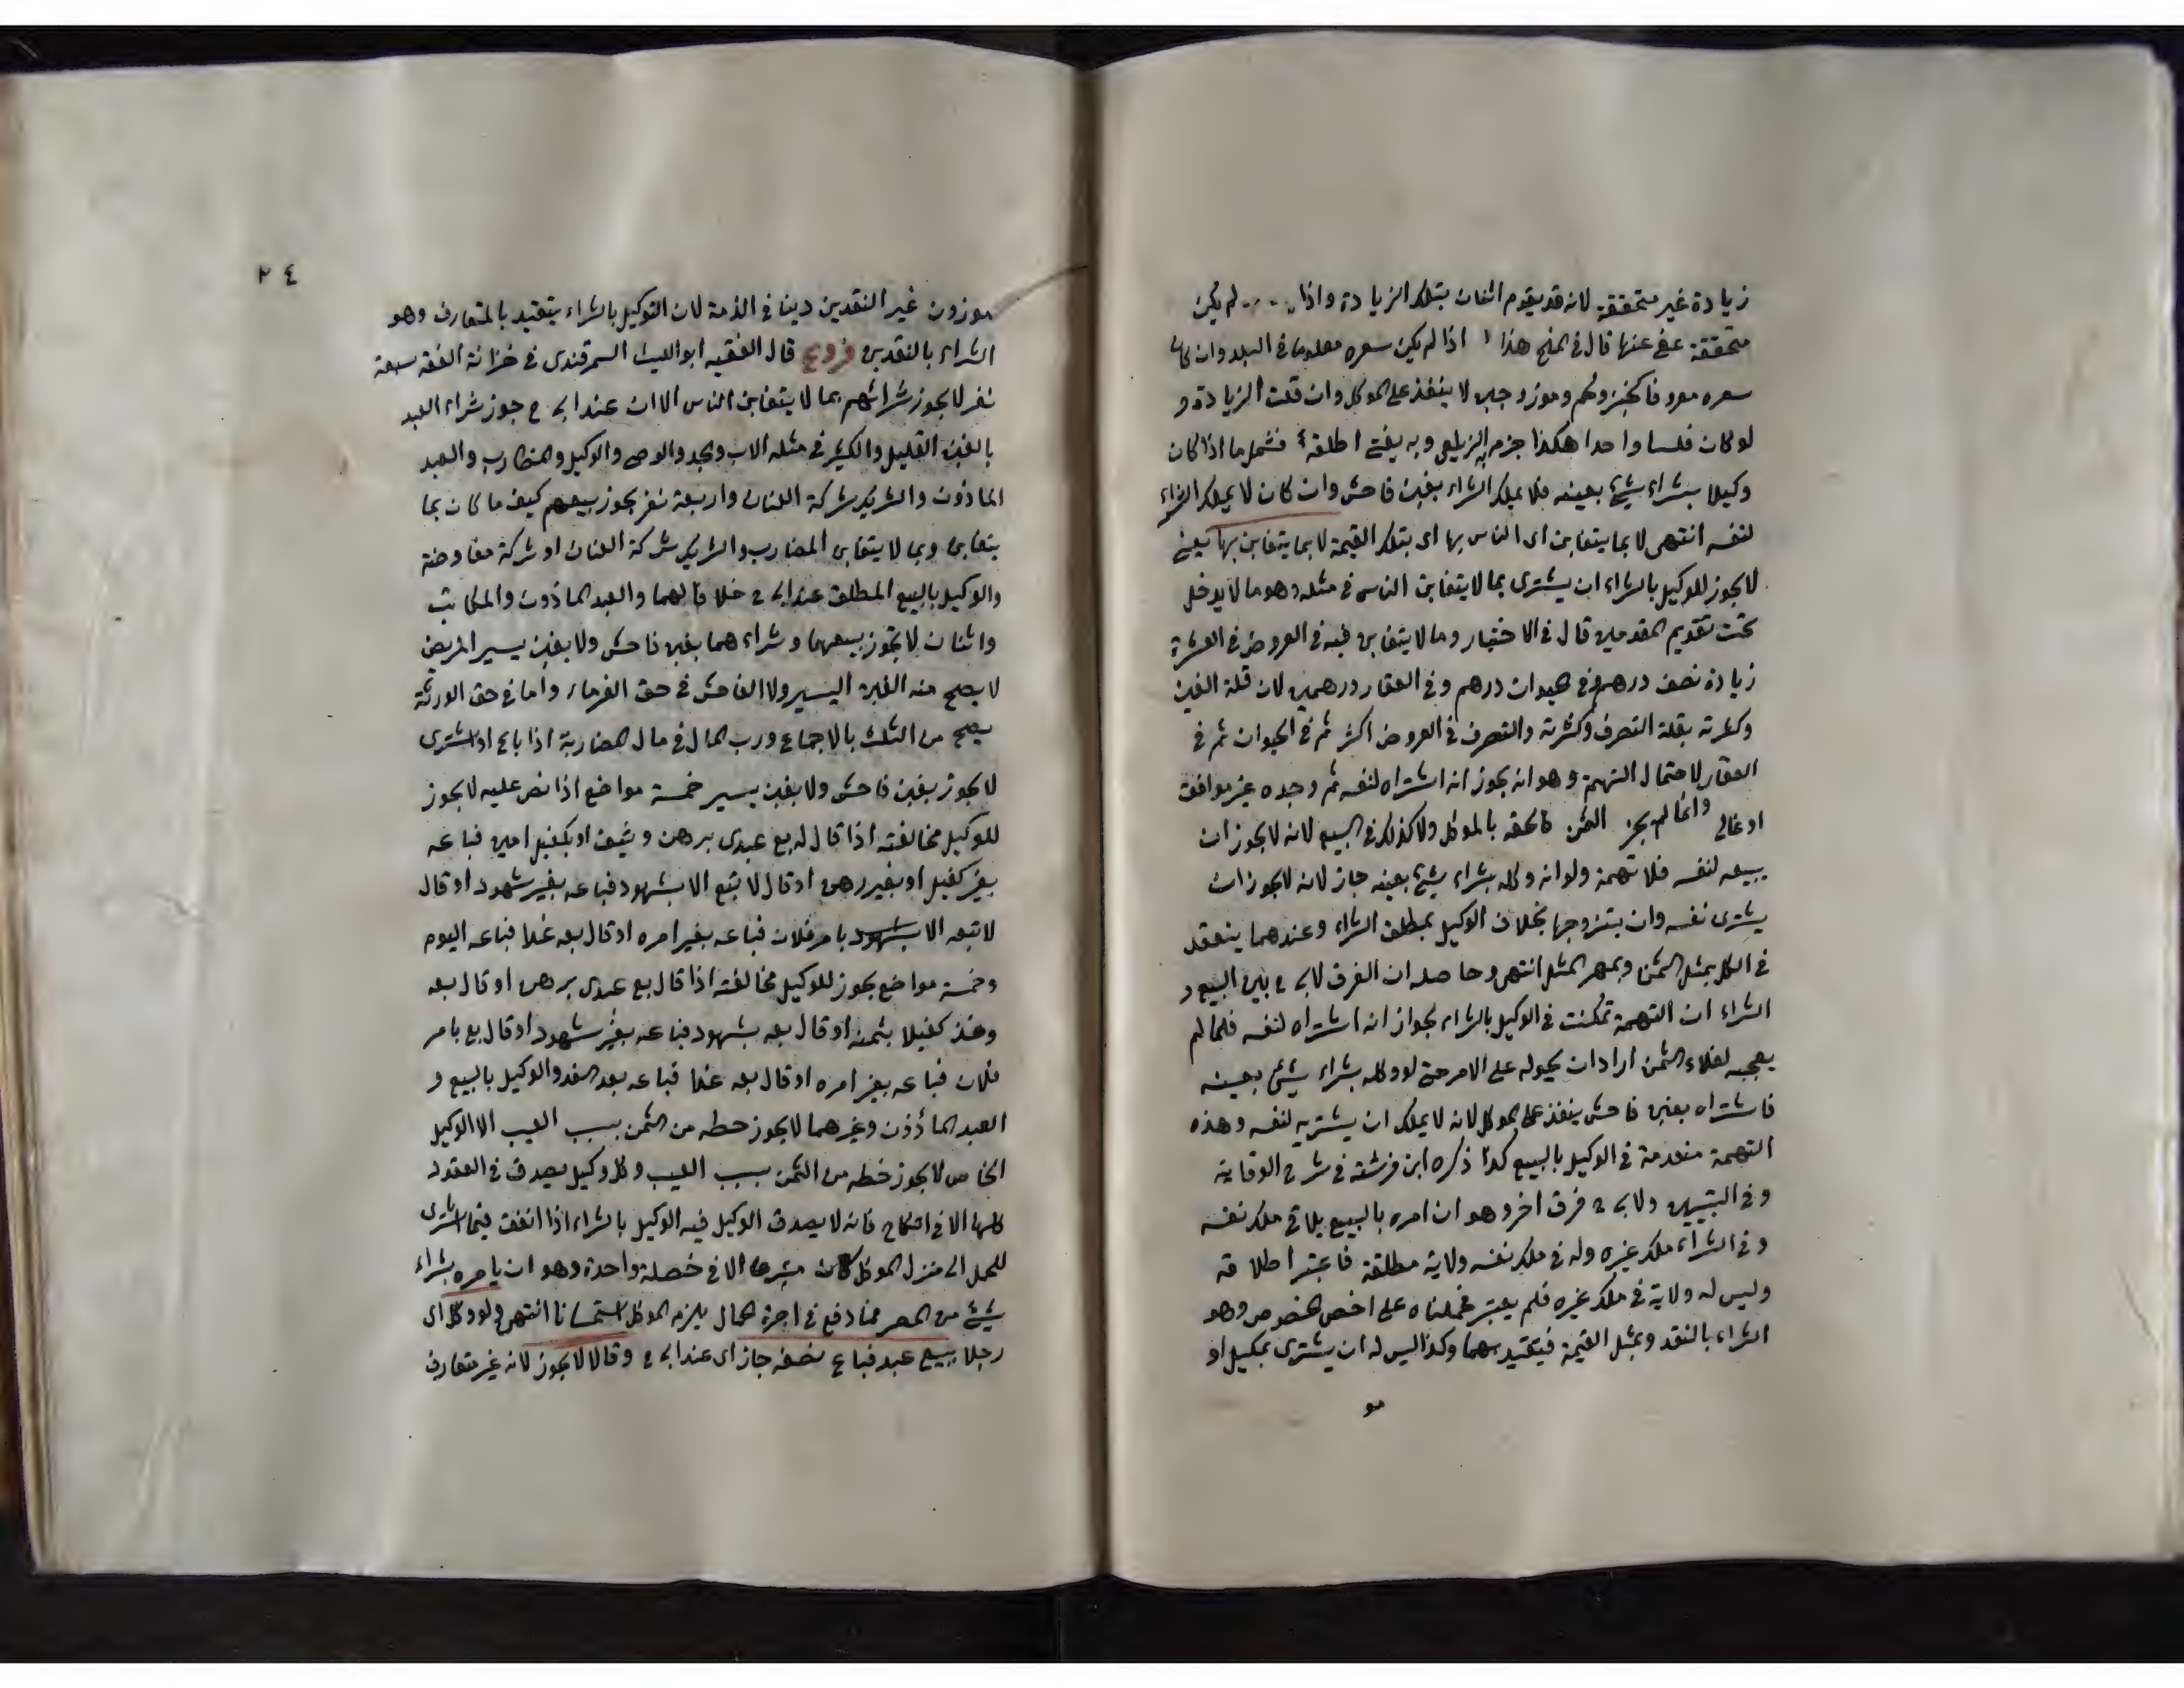 زيادة غير متحققة لانه قد يقوم انسان بتلك الزيادة واذا لم يكن
متحققة عفى عنها قال في المنح هذا اذا لم يكن سعره معلوما في البلد وان كان
سعره معروفا كخبز ولحم وموز وجبن لا ينفذ على الموكل وان قلت الزيادة و
لو كان فلسا واحدا هكذا جزم به الزيلعي وبه يفتى اطلقه فشمل ما اذا كان
وكيلا بشراء شيئ بعينه فلا يملك الشراء بغبن فاحش وان كان لا يملك الشراء
لنفسه انتهى لا بما يتغابن اى الناس بها اى بتلك القيمة لا بما يتغابن بها يعنى
لا يجوز للوكيل بالشراء ان يشترى بما لا يتغابن الناس في مثله وهو ما لا يدخل
تحت تقويم المقدمين قال في الاختيار وما لا يتغابن فيه في العروض في العشرة
زيادة نصف درهم وفي الحيوان درهم وفي العقار درهمين لان قلة الغبن
وكثرته بقلة التصرف وكثرته والتصرف في العروض اكثر ثم في الحيوان ثم في
العقار لاحتمال التهمة وهو انه يجوز انه اشتراه لنفسه ثم وجده غير موافق
او غالى وانما لم يجز الثمن فالحقه بالموكل ولا كذلك في البيع لانه لا يجوز ان
يبيعه لنفسه فلا تهمة ولو انه وكله بشراء شيئ بعينه جاز لانه لا يجوز ان
يشترى نفسه وان يتزوجها بخلاف الوكيل بمطلق الشراء وعندهما ينعقد
في الكل بمثل الثمن وبمهر المثل انتهى وحاصله ان الفرق لابى ح بين البيع و
الشراء ان التهمة تمكنت في الوكيل بالشراء لجواز انه اشتراه لنفسه فلما لم
يعجبه لغلاء الثمن اراد ان يحوله على الامر حتى لو وكله بشراء شيئ بعينه
فاشتراه بغبن فاحش ينفذ على الموكل لانه لا يملك ان يشتريه لنفسه وهذه
التهمة منعدمة في الوكيل بالبيع كذا ذكره ابن فرشته في شرح الوقاية
وفي التبيين ولابى ح فرق اخر وهو ان امره بالبيع يلاقى ملك نفسه
وفي الشراء ملك غيره وله في ملك نفسه ولاية مطلقة فاعتبر اطلاقه
وليس له ولاية في ملك غيره فلم يعتبر فحملناه على اخص الخصوص وهو
الشراء بالنقد وبمثل القيمة فيتقيد بهما وكذا ليس له ان يشترى بمكيل او
مو
٢٤
موزون غير النقدين دينا في الذمة لان التوكيل بالشراء يتقيد بالمتعارف وهو
الشراء بالنقدين فروع قال الفقيه ابو الليث السمرقندى في خزانة الفقه سبعة
نفر لا يجوز شرائهم بما لا يتغابن الناس الا ان عند ابى ح جوز شراء العبد
بالغبن القليل والكثير في مثله الاب والجد والوصى والوكيل والمضارب والعبد
الماذون والشريك شركة العنان واربعة نفر يجوز بيعهم كيف ما كان بما
يتغابن وبما لا يتغابن المضارب والشريك شركة العنان او شركة مفاوضة
والوكيل بالبيع المطلق عند ابى ح خلافا لهما والعبد الماذون والمكاتب
واثنان لا يجوز بيعهما وشراءهما بغبن فاحش ولا بغبن يسير المريض
لا يصح منه الغبن اليسير ولا الفاحش في حق الغرماء واما في حق الورثة
يصح من الثلث بالاجماع ورب المال في مال المضاربة اذا باع او اشترى
لا يجوز بغبن فاحش ولا بغبن يسير خمسة مواضع اذا نص عليه لا يجوز
للوكيل مخالفته اذا قال له بع عبدى برهن وثيق او بكفيل امين فباعه
بغير كفيل او بغير رهن او قال لا تبع الا بشهود فباعه بغير شهود او قال
لا تبعه الا بشهود بامر فلان فباعه بغير امره او قال بعه غدا فباعه اليوم
وخمسة مواضع يجوز للوكيل مخالفته اذا قال بع عبدى برهن او قال بعه
وخذ كفيلا بثمنه او قال بعه بشهود فباعه بغير شهود او قال بع بامر
فلان فباعه بغير امره او قال بعه غدا فباعه بعد الغد والوكيل بالبيع و
العبد المأذون وغيرهما لا يجوز حطه من الثمن بسبب العيب الا الوكيل
الخاص لا يجوز حطه من الثمن بسبب العيب وكل وكيل يصدق في العقود
كلها الا في النكاح فانه لا يصدق الوكيل فيه الوكيل بالشراء اذا انفق فيما اشترى
للحمل الى منزل الموكل كان متبرعا الا في خصلة واحدة وهو ان يامره بشراء
شيئ من المصر فما دفع في اجرة الحمال يلزم الموكل استحسانا انتهى ولو وكل اى
رجلا ببيع عبد فباع نصفه جاز اى عند ابى ح وقالا لا يجوز لانه غير متعارف